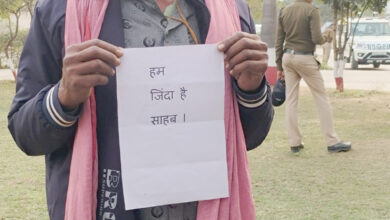 हम
जिंदा है
साहब ।